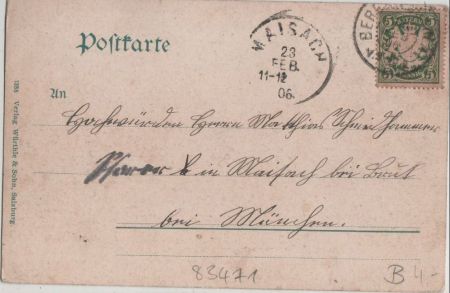 Postkarte
MAISACH
23
FEB.
11-12
06.
BER
BAYERN
5 5
5 5
An
Hochwürden Herrn Matthias Schmidhammer
Pfarrer in Maisach bei Bruck
bei München.
1188 Verlag Würthle & Sohn, Salzburg
83471
B 4.-